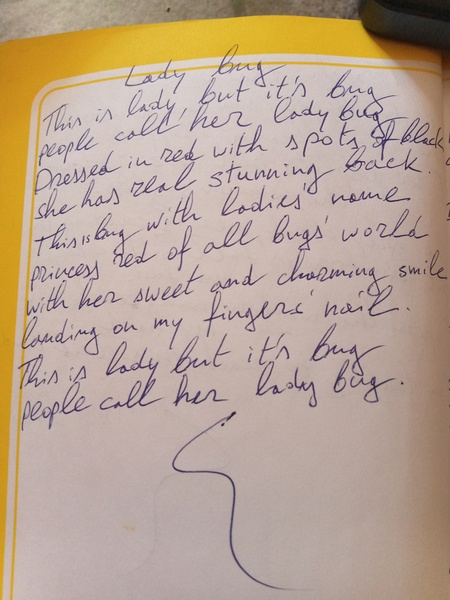 Lady bug
This is lady, but it's bug
people call her lady bug
Dressed in red with spots of black
she has real stunning back.
This is bug with ladies' name
princess red of all bugs' world
with her sweet and charming smile
landing on my fingers' nail.
This is lady but it's bug
people call her lady bug.